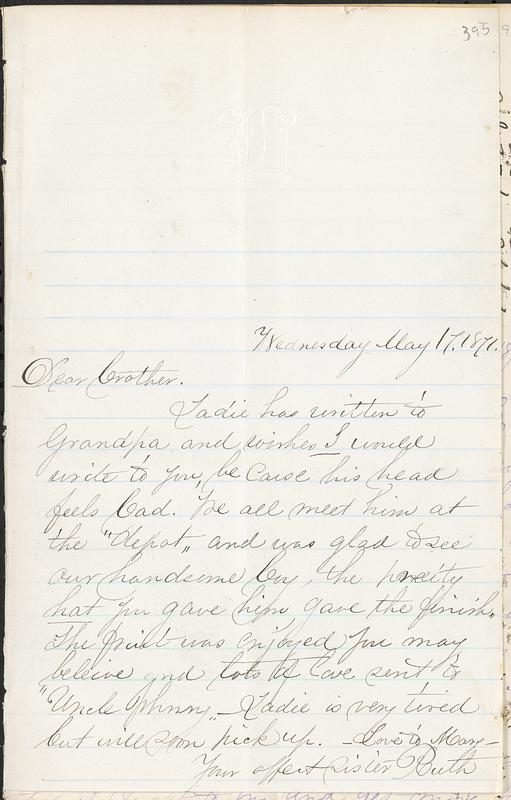 395
Wednesday May 17. 1871.
Dear Brother.
Sadie has written to
Grandpa and wishes I would
write to you, be cause his head
feels bad. We all meet him at
the "depot" and was glad to see
our handsome boy, the pretty
hat you gave him gave the finish.
The fruit was enjoyed you may
beleive and lots of love sent to
"Uncle Johnny" – Sadie is very tired
but will soon pick up. – Love to Mary –
Your affect sister Ruth